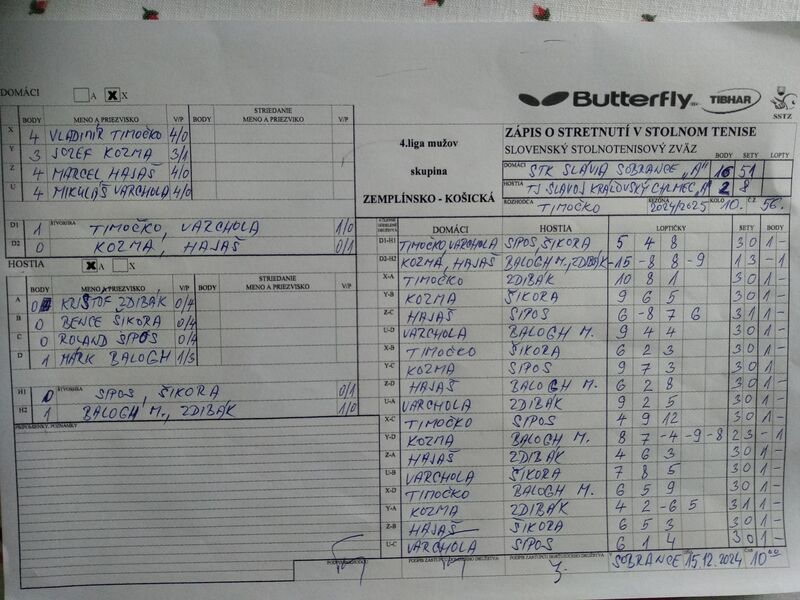 DOMÁCI A X X
Butterfly TIBHAR SSTZ
BODY MENO A PRIEZVISKO V/P BODY STRIEDANIE MENO A PRIEZVIKO V/P
X 4 VLADIMÍR TIMOČKO 4/0
Y 3 JOZEF KOZMA 3/1
Z 4 MARCEL HAJAŠ 4/0
U 4 MIKULÁŠ VARCHOLA 4/0
D1 1 ŠTVORHRA TIMOČKO, VARCHOLA 1/0
D2 0 KOZMA, HAJAŠ 0/1
HOSTIA X A X
BODY MENO A PRIEZVISKO V/P BODY STRIEDANIE MENO A PRIEZVISKO V/P
A 0 KRIŠTOF ZDIBÁK 0/4
B 0 BENCE ŠIKORA 0/4
C 0 ROLAND SIPOS 0/4
D 1 MARK BALOGH 1/3
H1 0 ŠTVORHRA SIPOS, ŠIKORA 0/1
H2 1 BALOGH M., ZDIBÁK 1/0
PRIPOMIENKY, POZNÁMKY
4.liga mužov
skupina
ZEMPLÍNSKO - KOŠICKÁ
ZÁPIS O STRETNUTÍ V STOLNOM TENISE
SLOVENSKÝ STOLNOTENISOVÝ ZVÄZ BODY SETY LOPTY
DOMÁCI STK SLÁVIA SOBRANCE "A" 16 51
HOSTIA TJ SLAVOJ KRÁĽOVSKÝ CHLMEC "A" 2 8
ROZHODCA TIMOČKO SEZÓNA 2024/2025 KOLO 10. Č.Z. 56.
DOMÁCI HOSTIA LOPTIČKY SETY BODY
D1-H1 TIMOČKO, VARCHOLA SIPOS, ŠIKORA 5 4 8 3 0 1 -
D2-H2 KOZMA, HAJAŠ BALOGH M., ZDIBÁK -15 -8 8 -9 1 3 - 1
X-A TIMOČKO ZDIBÁK 10 8 1 3 0 1 -
Y-B KOZMA ŠIKORA 9 6 5 3 0 1 -
Z-C HAJAŠ SIPOS 6 -8 7 6 3 1 1 -
U-D VARCHOLA BALOGH M. 9 4 4 3 0 1 -
X-B TIMOČKO ŠIKORA 6 2 3 3 0 1 -
Y-C KOZMA SIPOS 9 7 3 3 0 1
Z-D HAJAŠ BALOGH M. 6 2 8 3 0 1 -
U-A VARCHOLA ZDIBÁK 9 2 5 3 0 1 -
X-C TIMOČKO SIPOS 4 9 12 3 0 1 -
Y-D KOZMA BALOGH M. 8 7 -4 -9 -8 2 3 - 1
Z-A HAJAŠ ZDIBÁK 4 6 3 3 0 1 -
U-B VARCHOLA ŠIKORA 7 8 5 3 0 1 -
X-D TIMOČKO BALOGH M. 6 5 9 3 0 1 -
Y-A KOZMA ZDIBÁK 4 2 -6 5 3 1 1 -
Z-B HAJAŠ ŠIKORA 6 5 3 3 0 1 -
U-C VARCHOLA SIPOS 6 1 4 3 0 1 -
PODPIS ROZHODCU PODPIS ZÁSTUPCU DOMÁCEHO DRUŽSTVA PODPIS ZÁSTUPCU HOSŤUJÚCEHO DRUŽSTVA V SOBRANCE 15.12.2024 ČAS 10 00